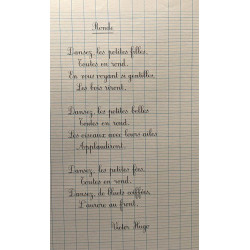 Ronde
Dansez, les petites filles,
Toutes en rond.
En vous voyant si gentilles,
Les bois riront.
Dansez, les petites belles
Toutes en rond.
Les oiseaux avec leurs ailes
Applaudiront.
Dansez, les petites fées,
Toutes en rond.
Dansez, de bluets coiffées,
L'aurore au front.
Victor Hugo